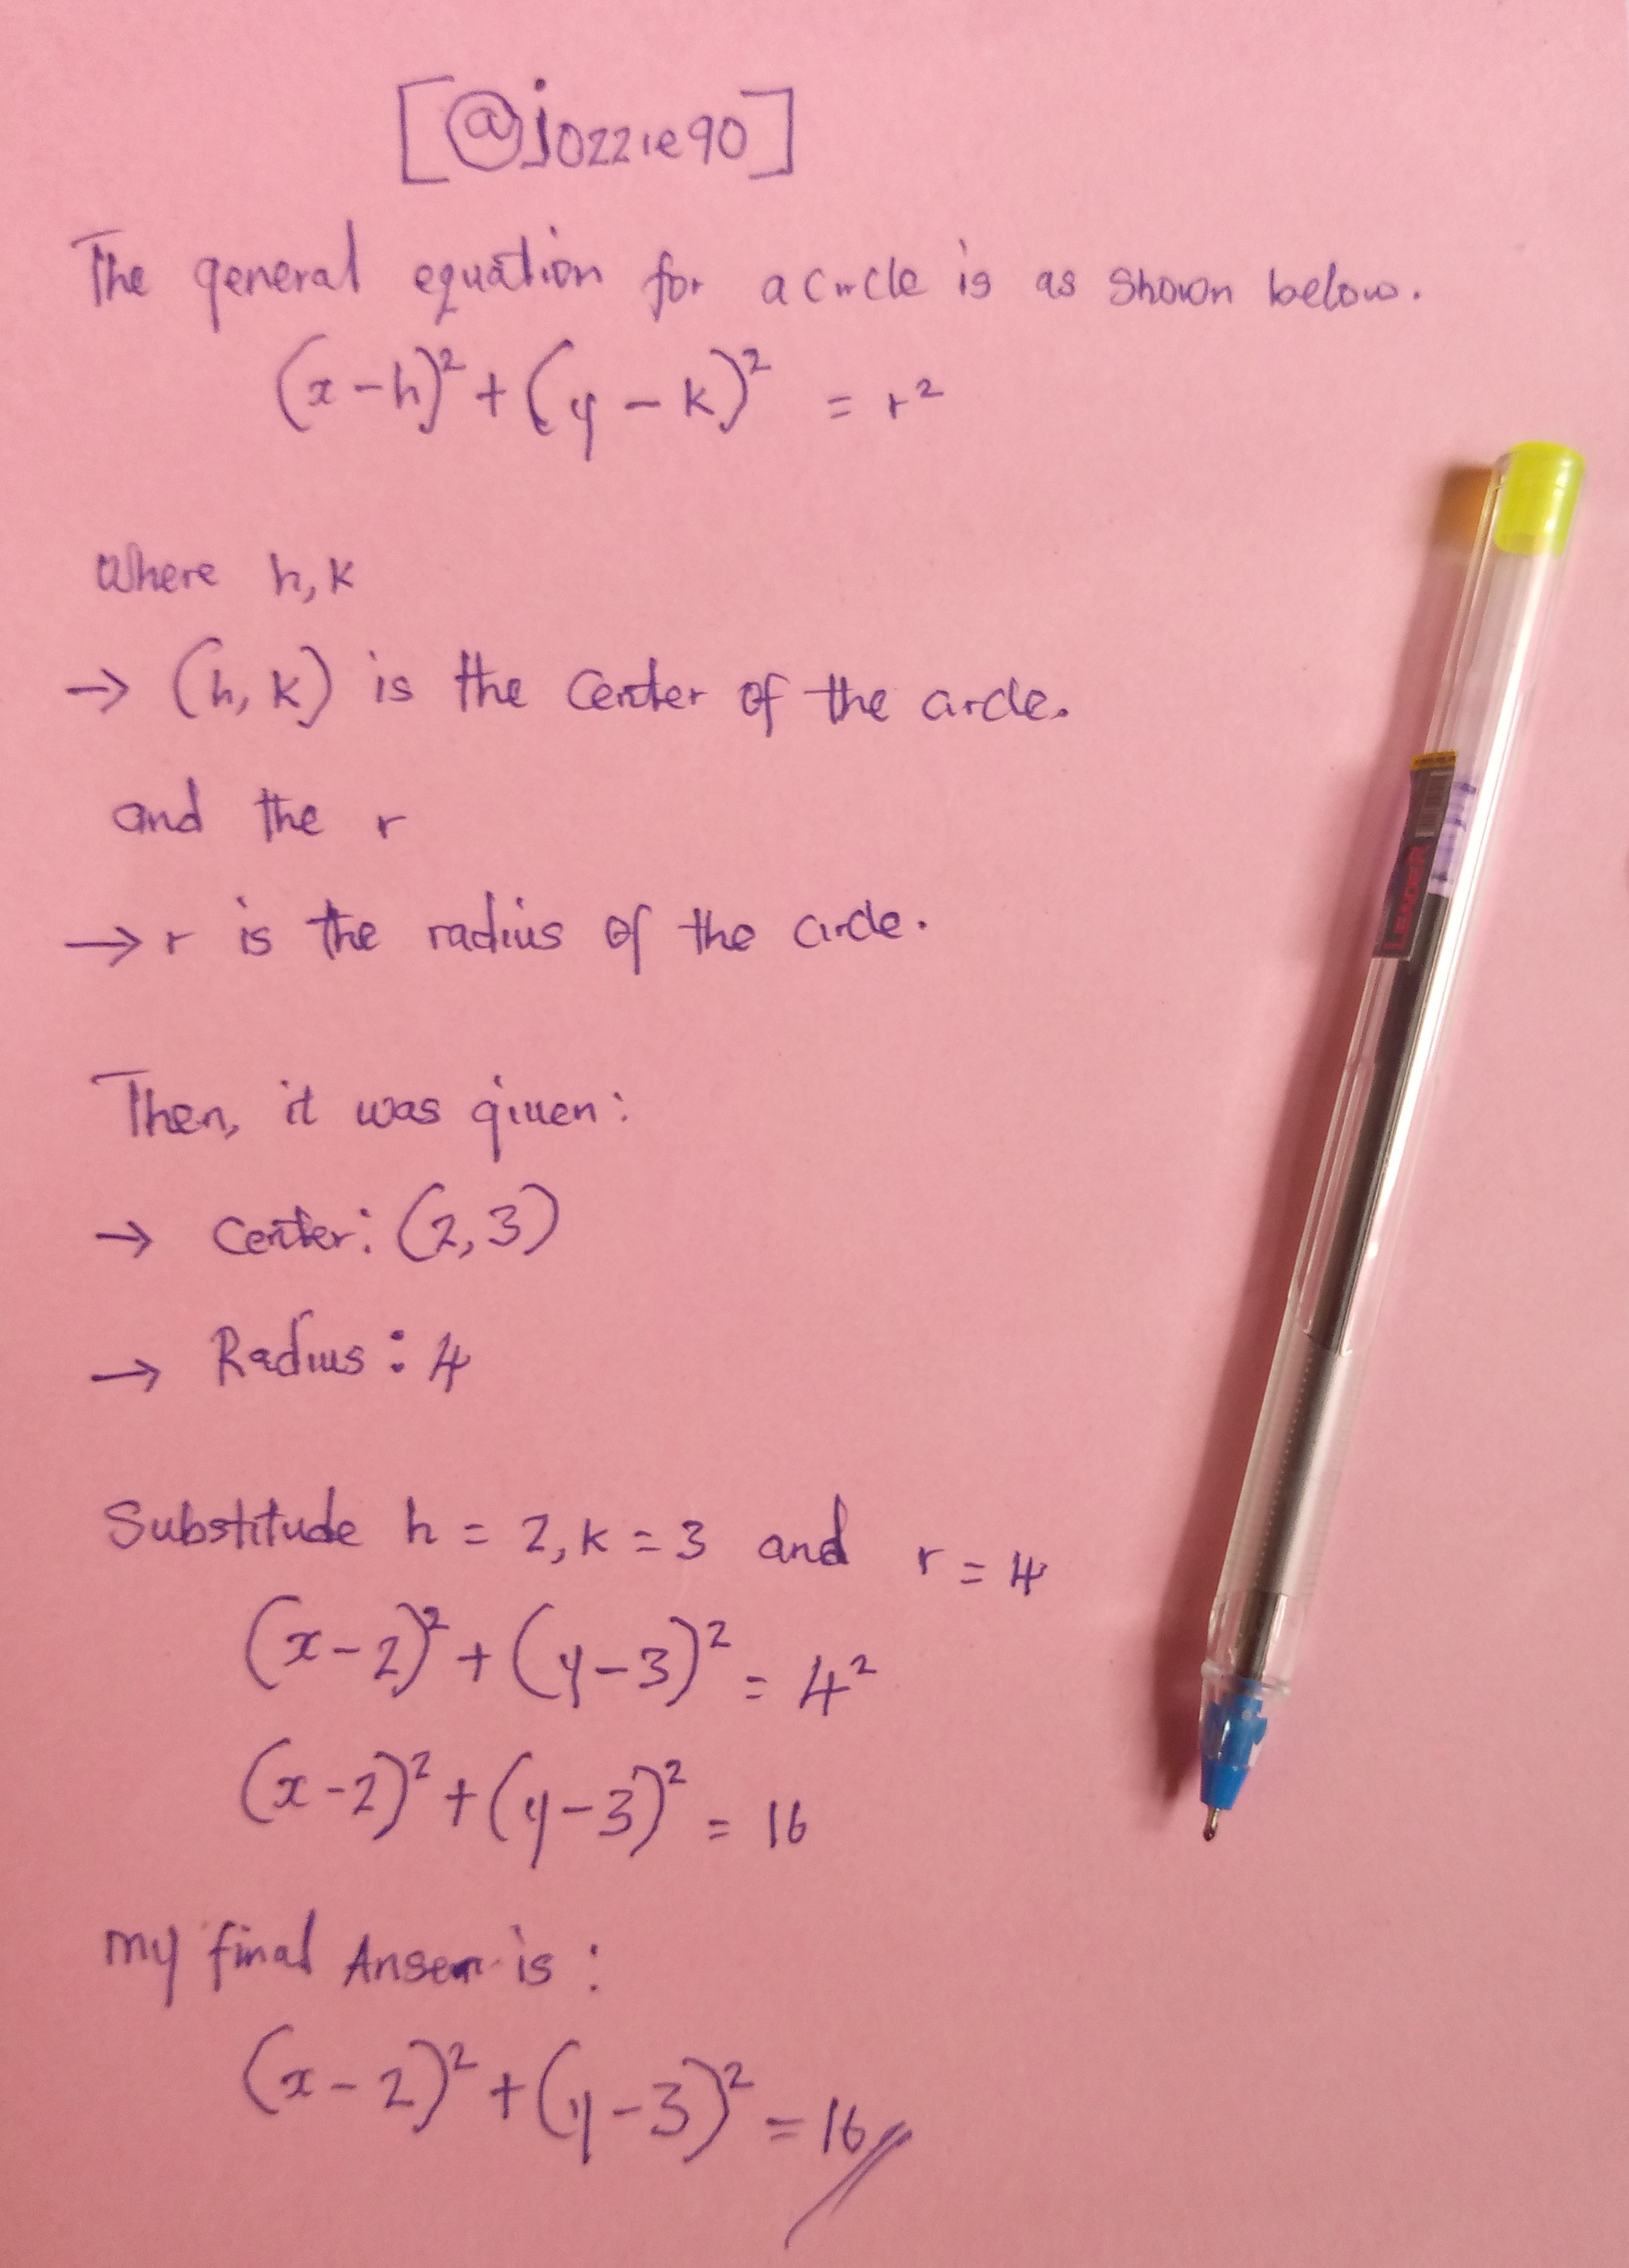 [@jozzie90]
The general equation for a circle is as shown below.
(x-h)² + (y-k)² = r²
where h, k
→ (h, k) is the center of the circle.
and the r
→ r is the radius of the circle.
Then, it was given:
→ Center: (2, 3)
→ Radius: 4
LeadeR
Substitude h = 2, k = 3 and r = 4
(x-2)² + (y-3)² = 4²
(x-2)² + (y-3)² = 16
my final Anser is:
(x-2)² + (y-3)² = 16